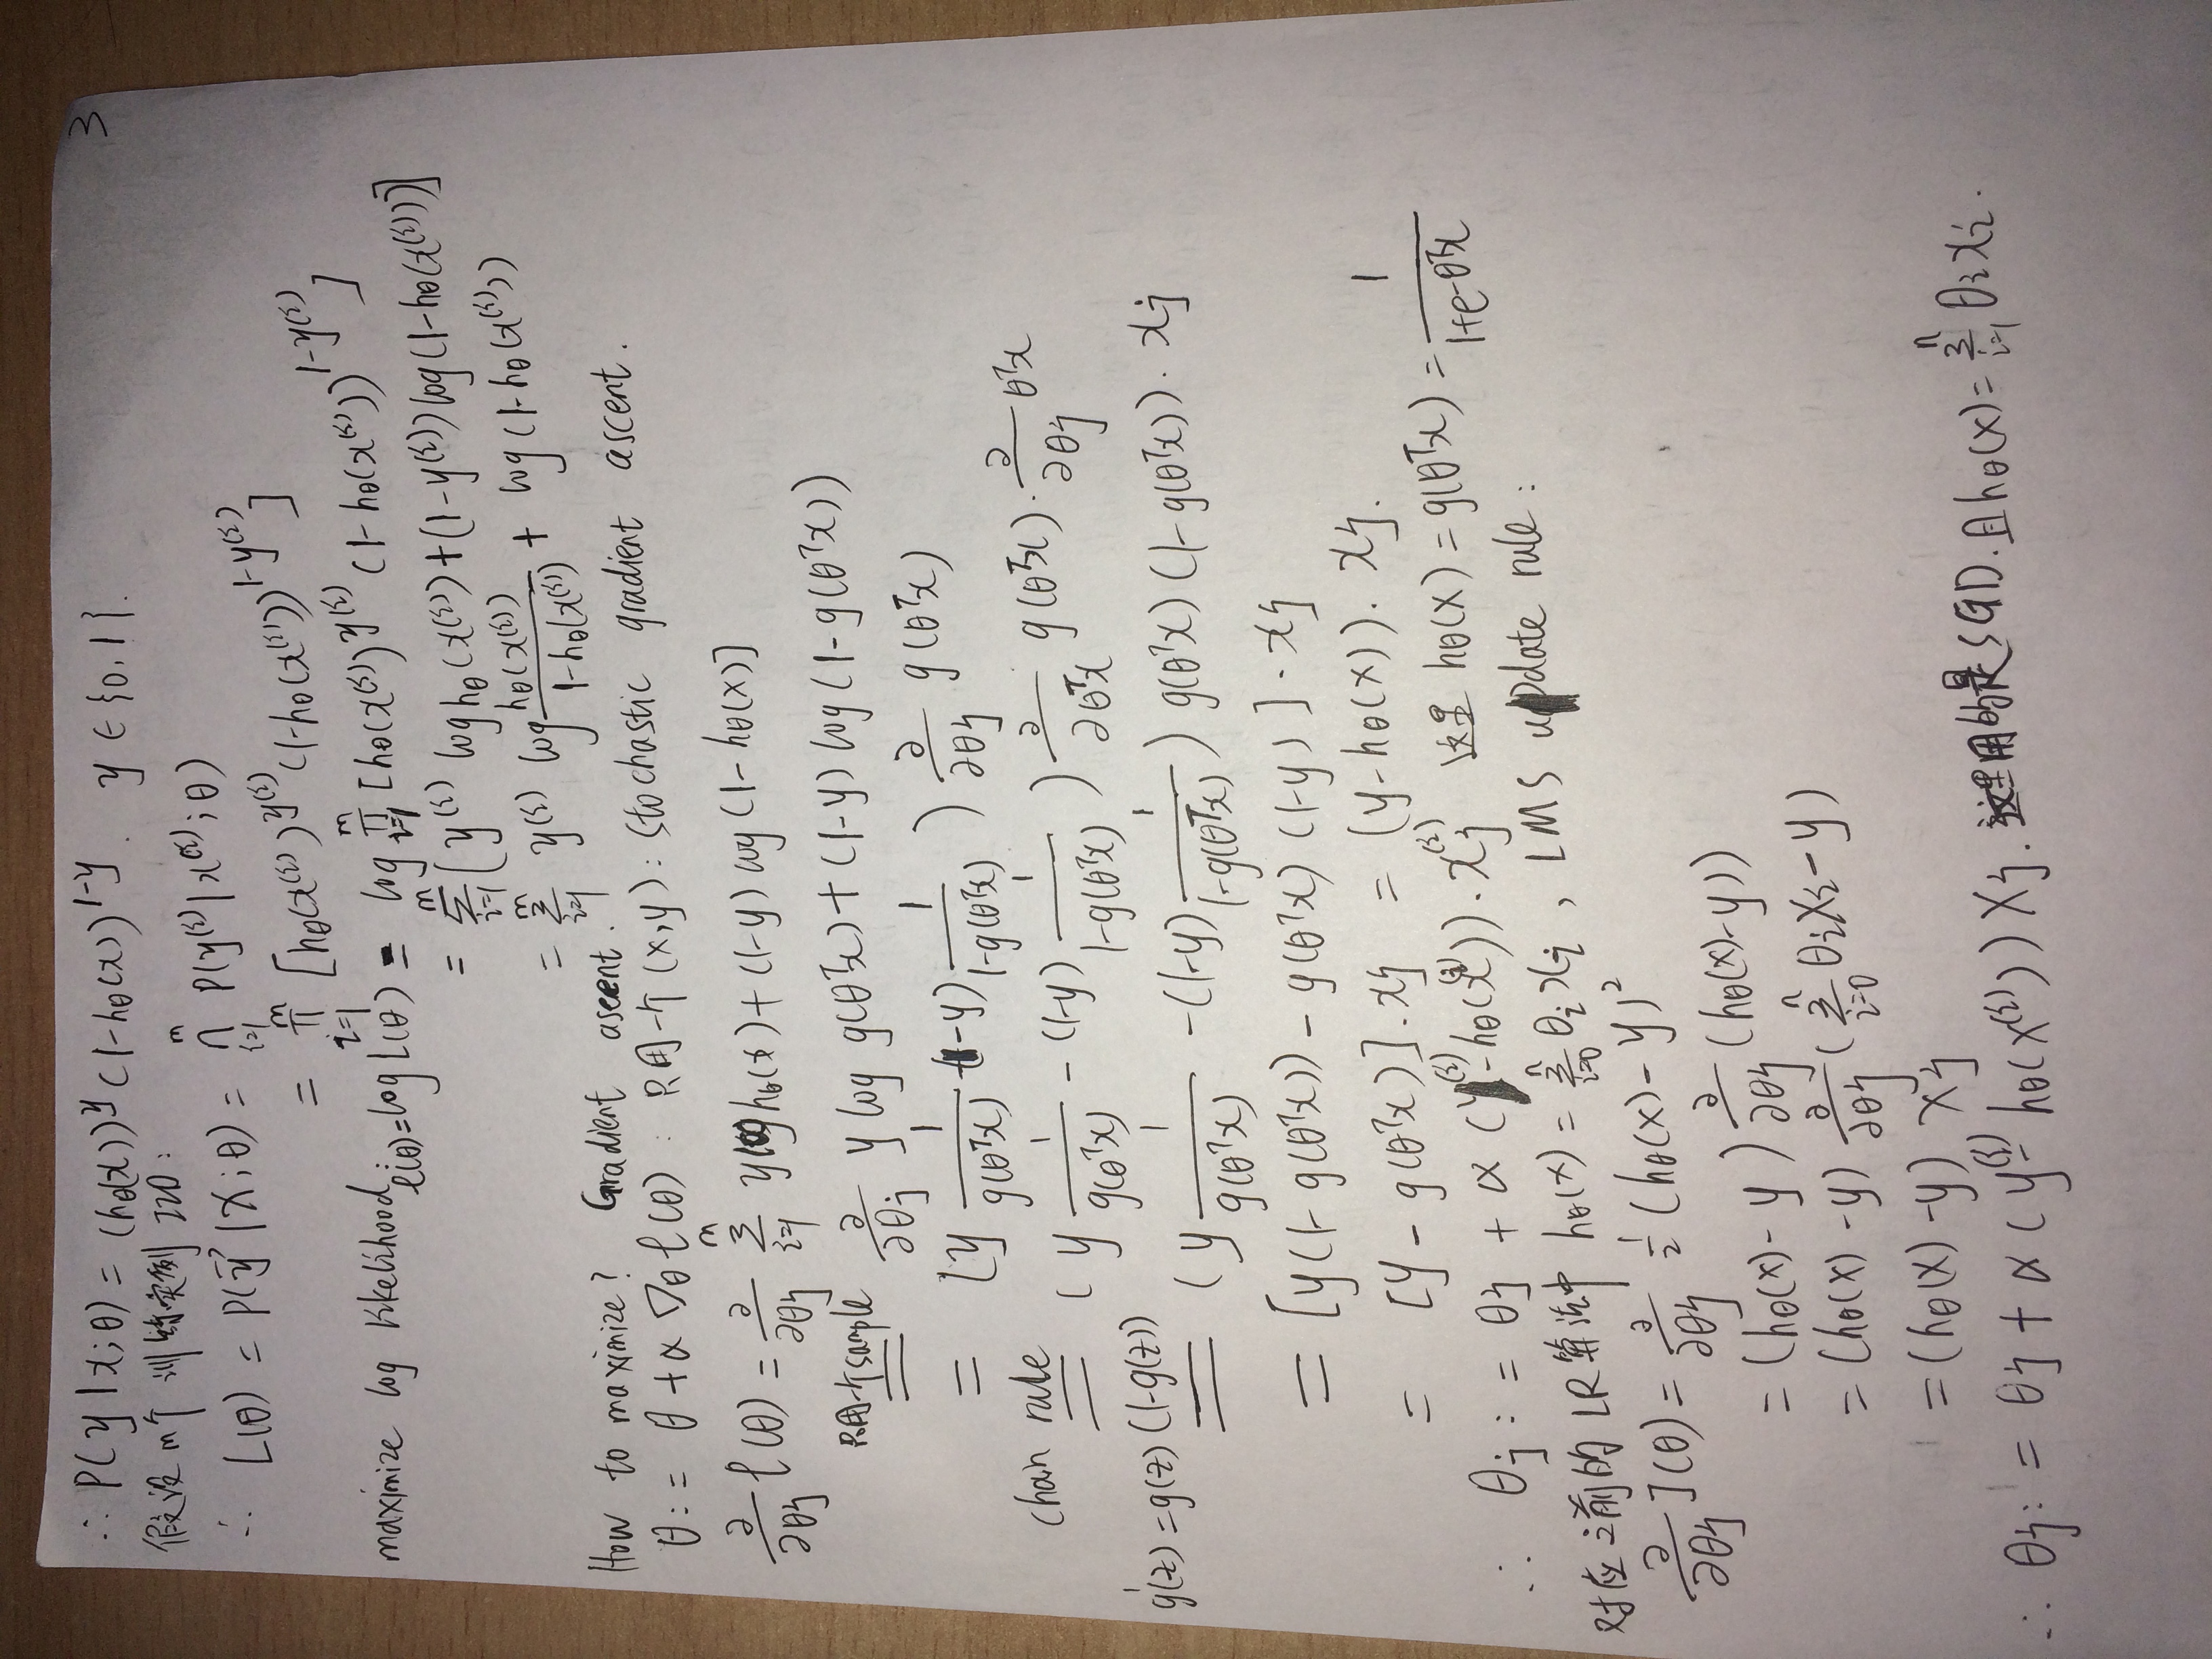 3
∴ P(y|x;θ) = (hθ(x))^y (1-hθ(x))^{1-y}. y∈{0,1}.
假设m个训练实例 IID:
∴ L(θ) = P(y⃗|X;θ) = ∏_{i=1}^{m} P(y^{(i)}|x^{(i)};θ)
= ∏_{i=1}^{m} [hθ(x^{(i)})^{y^{(i)}} (1-hθ(x^{(i)}))^{1-y^{(i)}}]
maximize log likelihood: ℓ(θ)=log L(θ) = log ∏_{i=1}^{m} [hθ(x^{(i)})^{y^{(i)}} (1-hθ(x^{(i)}))^{1-y^{(i)}}]
= Σ_{i=1}^{m} [y^{(i)} log hθ(x^{(i)}) + (1-y^{(i)}) log(1-hθ(x^{(i)}))]
= Σ_{i=1}^{m} y^{(i)} log \frac{hθ(x^{(i)})}{1-hθ(x^{(i)})} + log(1-hθ(x^{(i)}))
How to maximize? Gradient ascent.
θ := θ + α ∇θ ℓ(θ) : 只用一个(x,y): stochastic gradient ascent.
\frac{∂}{∂θj} ℓ(θ) = \frac{∂}{∂θj} Σ_{i=1}^{m} y log hθ(x) + (1-y) log(1-hθ(x)]
只用一个sample = \frac{∂}{∂θj} y log g(θ^T x) + (1-y) log(1-g(θ^T x))
= (y \frac{1}{g(θ^T x)} - (1-y) \frac{1}{1-g(θ^T x)}) \frac{∂}{∂θj} g(θ^T x)
chain rule = (y \frac{1}{g(θ^T x)} - (1-y) \frac{1}{1-g(θ^T x)}) \frac{∂}{∂θ^T x} g(θ^T x) · \frac{∂}{∂θj} θ^T x
g'(z)=g(z)(1-g(z)) = (y \frac{1}{g(θ^T x)} - (1-y) \frac{1}{1-g(θ^T x)}) g(θ^T x)(1-g(θ^T x)) · xj
= [y(1-g(θ^T x)) - g(θ^T x)(1-y)] · xj
= [y - g(θ^T x)] · xj = (y-hθ(x)) · xj.
∴ θj := θj + α (y^{(i)}-hθ(x^{(i)})) · xj^{(i)} 这里 hθ(x) = g(θ^T x) = \frac{1}{1+e^{-θ^T x}}
对应之前的LR算法中 hθ(x) = Σ_{i=0}^{n} θi xi, LMS update rule:
\frac{∂}{∂θj} J(θ) = \frac{∂}{∂θj} \frac{1}{2} (hθ(x)-y)^2
= (hθ(x)-y) \frac{∂}{∂θj} (hθ(x)-y))
= (hθ(x)-y) \frac{∂}{∂θj} (Σ_{i=0}^{n} θi xi - y)
= (hθ(x)-y) xj
∴ θj := θj + α (y^{(i)} - hθ(x^{(i)})) xj. 这里用的是SGD. 且hθ(x) = Σ_{i=1}^{n} θi xi.